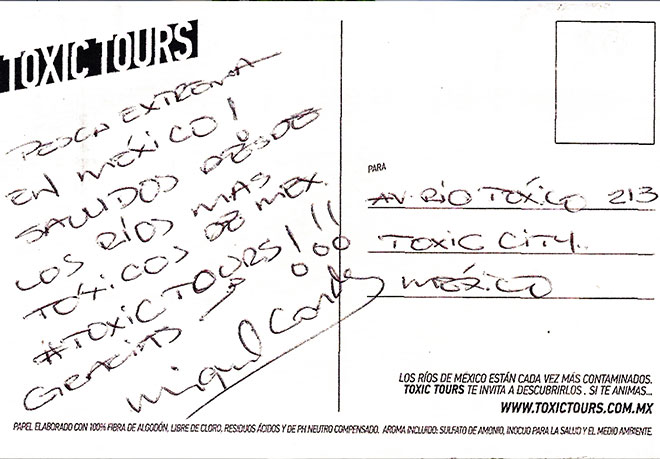 TOXIC TOURS
PESCA EXTREMA
EN MÉXICO!
SALUDOS DESDE
LOS RÍOS MAS
TÓXICOS DE MEX.
#TOXICTOURS!!!
GRACIAS
Miguel
PARA
AV. RÍO TÓXICO 213
TOXIC CITY.
MÉXICO
LOS RÍOS DE MÉXICO ESTÁN CADA VEZ MÁS CONTAMINADOS.
TOXIC TOURS TE INVITA A DESCUBRIRLOS. SI TE ANIMAS...
WWW.TOXICTOURS.COM.MX
PAPEL ELABORADO CON 100% FIBRA DE ALGODÓN, LIBRE DE CLORO, RESIDUOS ÁCIDOS Y DE PH NEUTRO COMPENSADO. AROMA INCLUIDO: SULFATO DE AMONIO, INOCUO PARA LA SALUD Y EL MEDIO AMBIENTE.